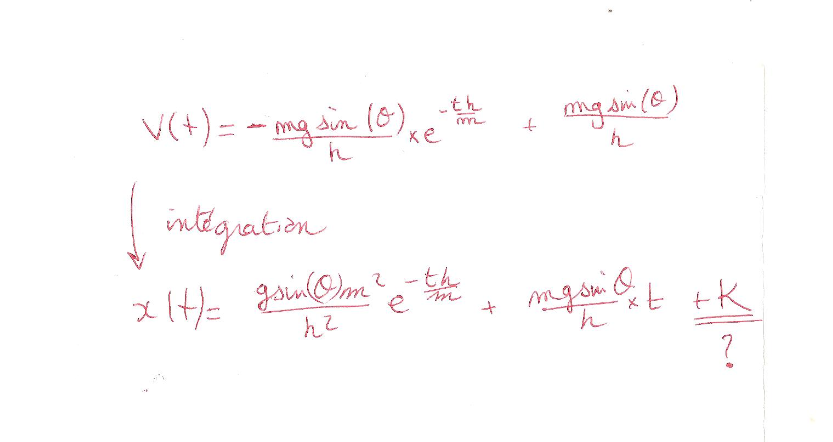 V(t) = - mg sin (θ)/h × e^(-th/m) + mg sin(θ)/h
intégration
x(t) = gsin(θ)m²/h² e^(-th/m) + mg sin θ/h × t + K
?